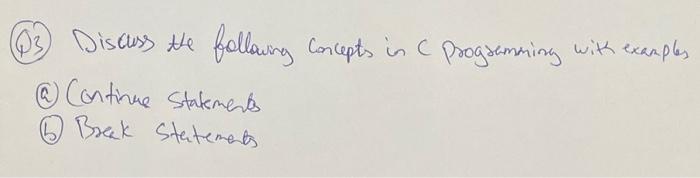 Q3 Discuss the following Concepts in C Programming with examples
a Continue Statements
b Break Statements